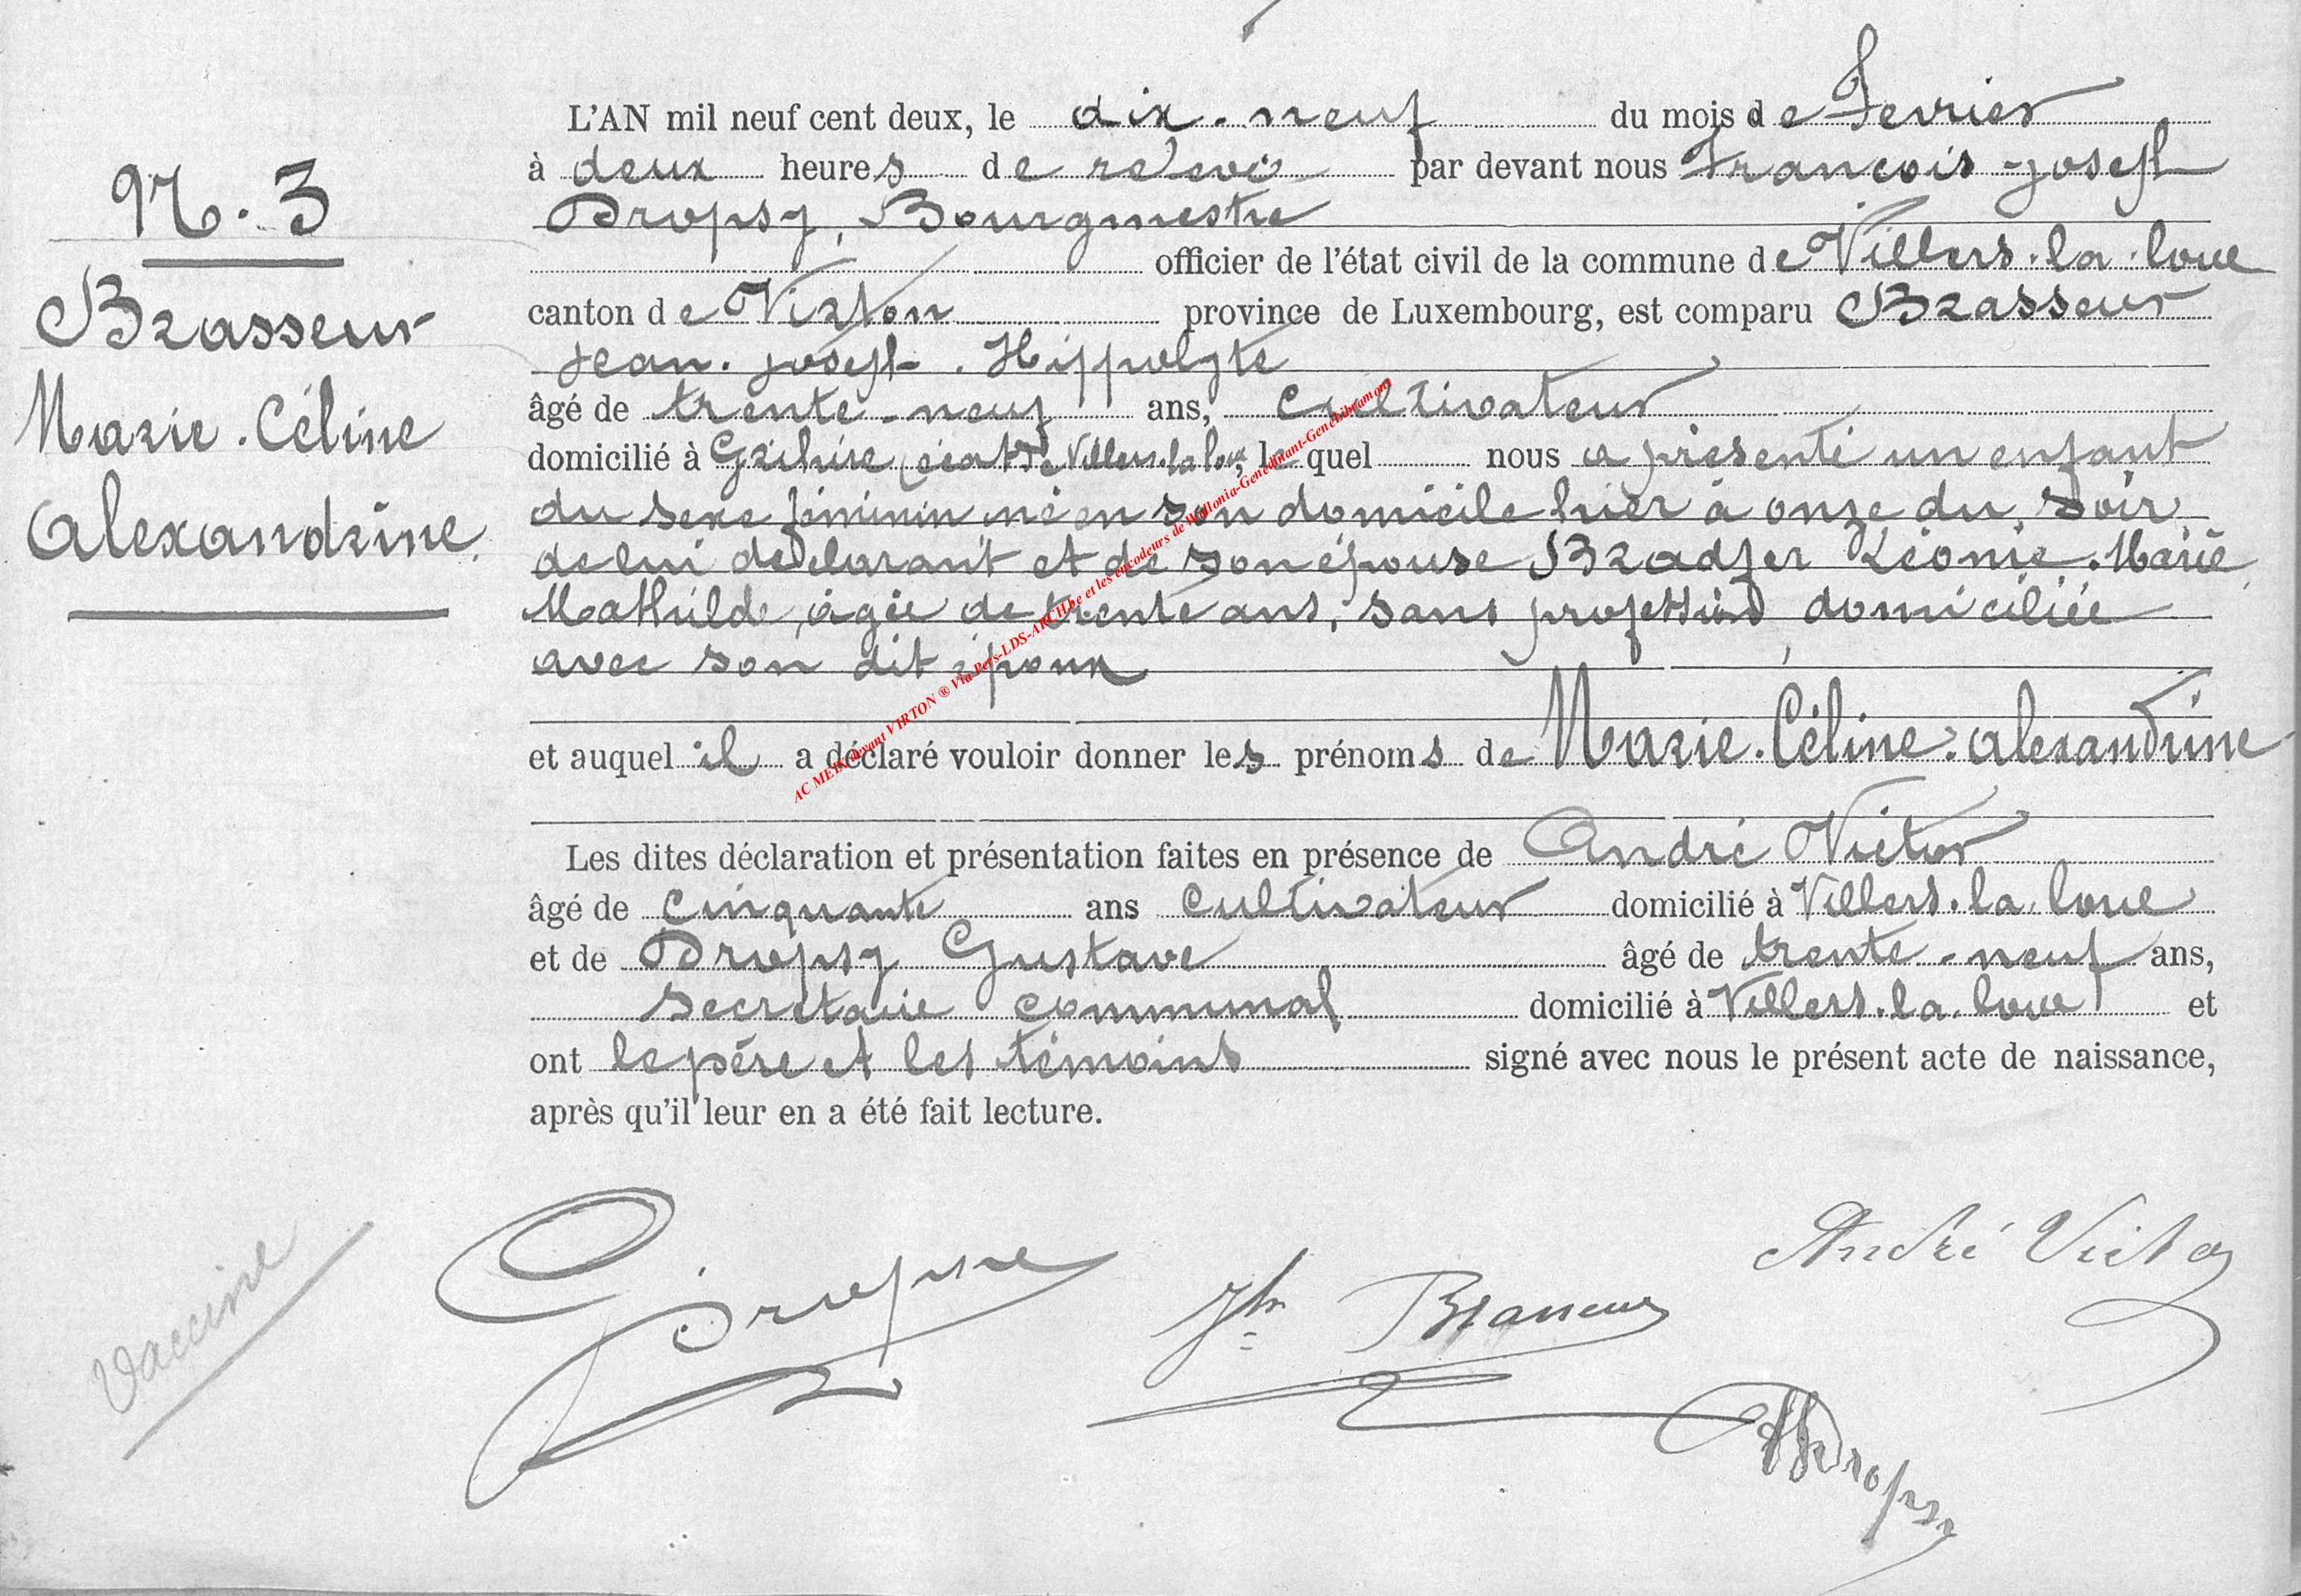 N. 3
Brasseur
Marie. Céline
Alexandrine.
L'AN mil neuf cent deux, le dix-neuf du mois de Fevrier
à deux heures de relevé par devant nous François-Joseph
Dropsy, Bourgmestre
officier de l'état civil de la commune de Villers-la-loue
canton de Virton province de Luxembourg, est comparu Brasseur
Jean. Joseph. Hippolyte
âgé de trente-neuf ans, cultivateur
domicilié à (écart de Villers-la-loue, lequel nous a présenté un enfant
du sexe féminin né en son domicile hier à onze du soir
de lui déclarant et de son épouse Bradfer Léonie. Marie
Mathilde, âgée de trente ans, sans profession, domiciliée
avec son dit époux
et auquel il a déclaré vouloir donner les prénoms de Marie. Céline. Alexandrine
Les dites déclaration et présentation faites en présence de André Victor
âgé de cinquante ans cultivateur domicilié à Villers-la-loue
et de Dropsy Gustave âgé de trente-neuf ans,
secrétaire communal domicilié à Villers-la-loue et
ont le père et les témoins signé avec nous le présent acte de naissance,
après qu'il leur en a été fait lecture.
AC MEIX devant VIRTON ® Via Pers-LDS-ARCH.be et les encodeurs de Wallonia-Genedinant-GeneLibramont
André Victor
Jh Brasseur
Dropsy
Vacciné